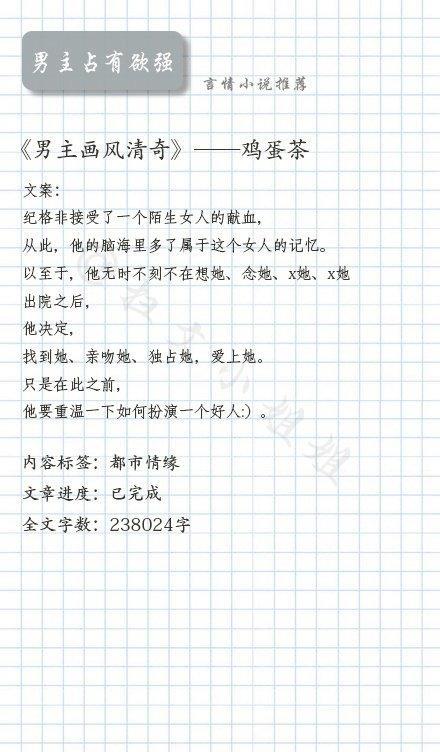 男主占有欲强
言情小说推荐
《男主画风清奇》——鸡蛋茶
文案：
纪格非接受了一个陌生女人的献血，
从此，他的脑海里多了属于这个女人的记忆。
以至于，他无时不刻不在想她、念她、x她、x她
出院之后，
他决定，
找到她、亲吻她、独占她，爱上她。
只是在此之前，
他要重温一下如何扮演一个好人:）。
内容标签：都市情缘
文章进度：已完成
全文字数：238024字